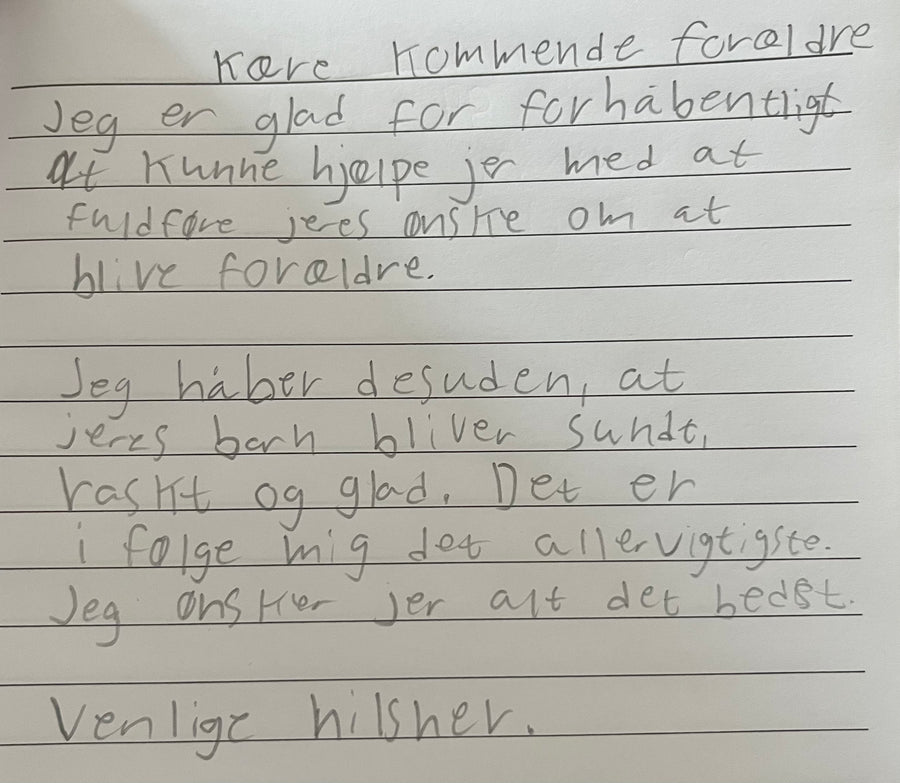 Kære Kommende forældre
Jeg er glad for forhåbentligt
at kunne hjælpe jer med at
fuldføre jeres ønske om at
blive forældre.
Jeg håber desuden, at
jeres barn bliver sundt,
raskt og glad. Det er
i følge mig det allervigtigste.
Jeg ønsker jer alt det bedst.
Venlige hilsner.